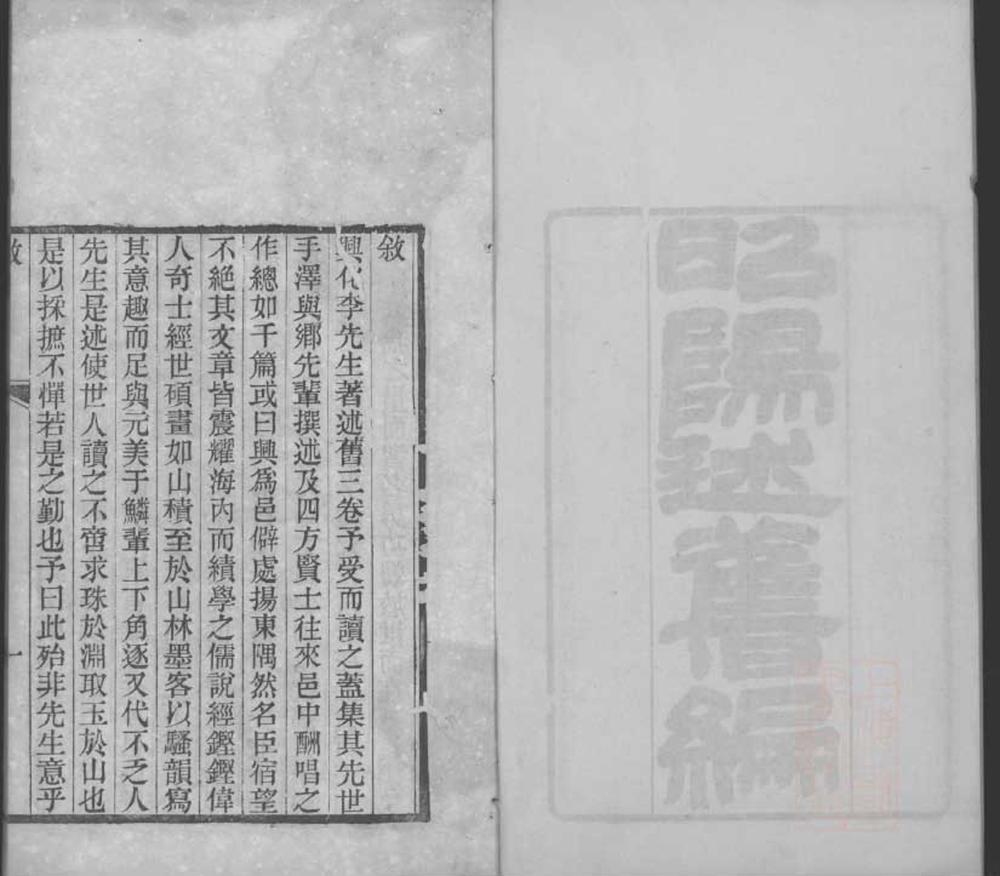 昭陽述舊編
敘
興化李先生著述舊三卷予受而讀之蓋集其先世
手澤與鄉先輩撰述及四方賢士往來邑中酬唱之
作總如干篇或曰興爲邑僻處揚東隅然名臣宿望
不絕其文章皆震耀海內而績學之儒說經鏗鏗偉
人奇士經世碩畫如山積至於山林墨客以騷韻寫
其意趣而足與元美于鱗輩上下角逐又代不乏人
先生是述使世人讀之不啻求珠於淵取玉於山也
是以採摭不憚若是之勤也予曰此殆非先生意乎
敘
一